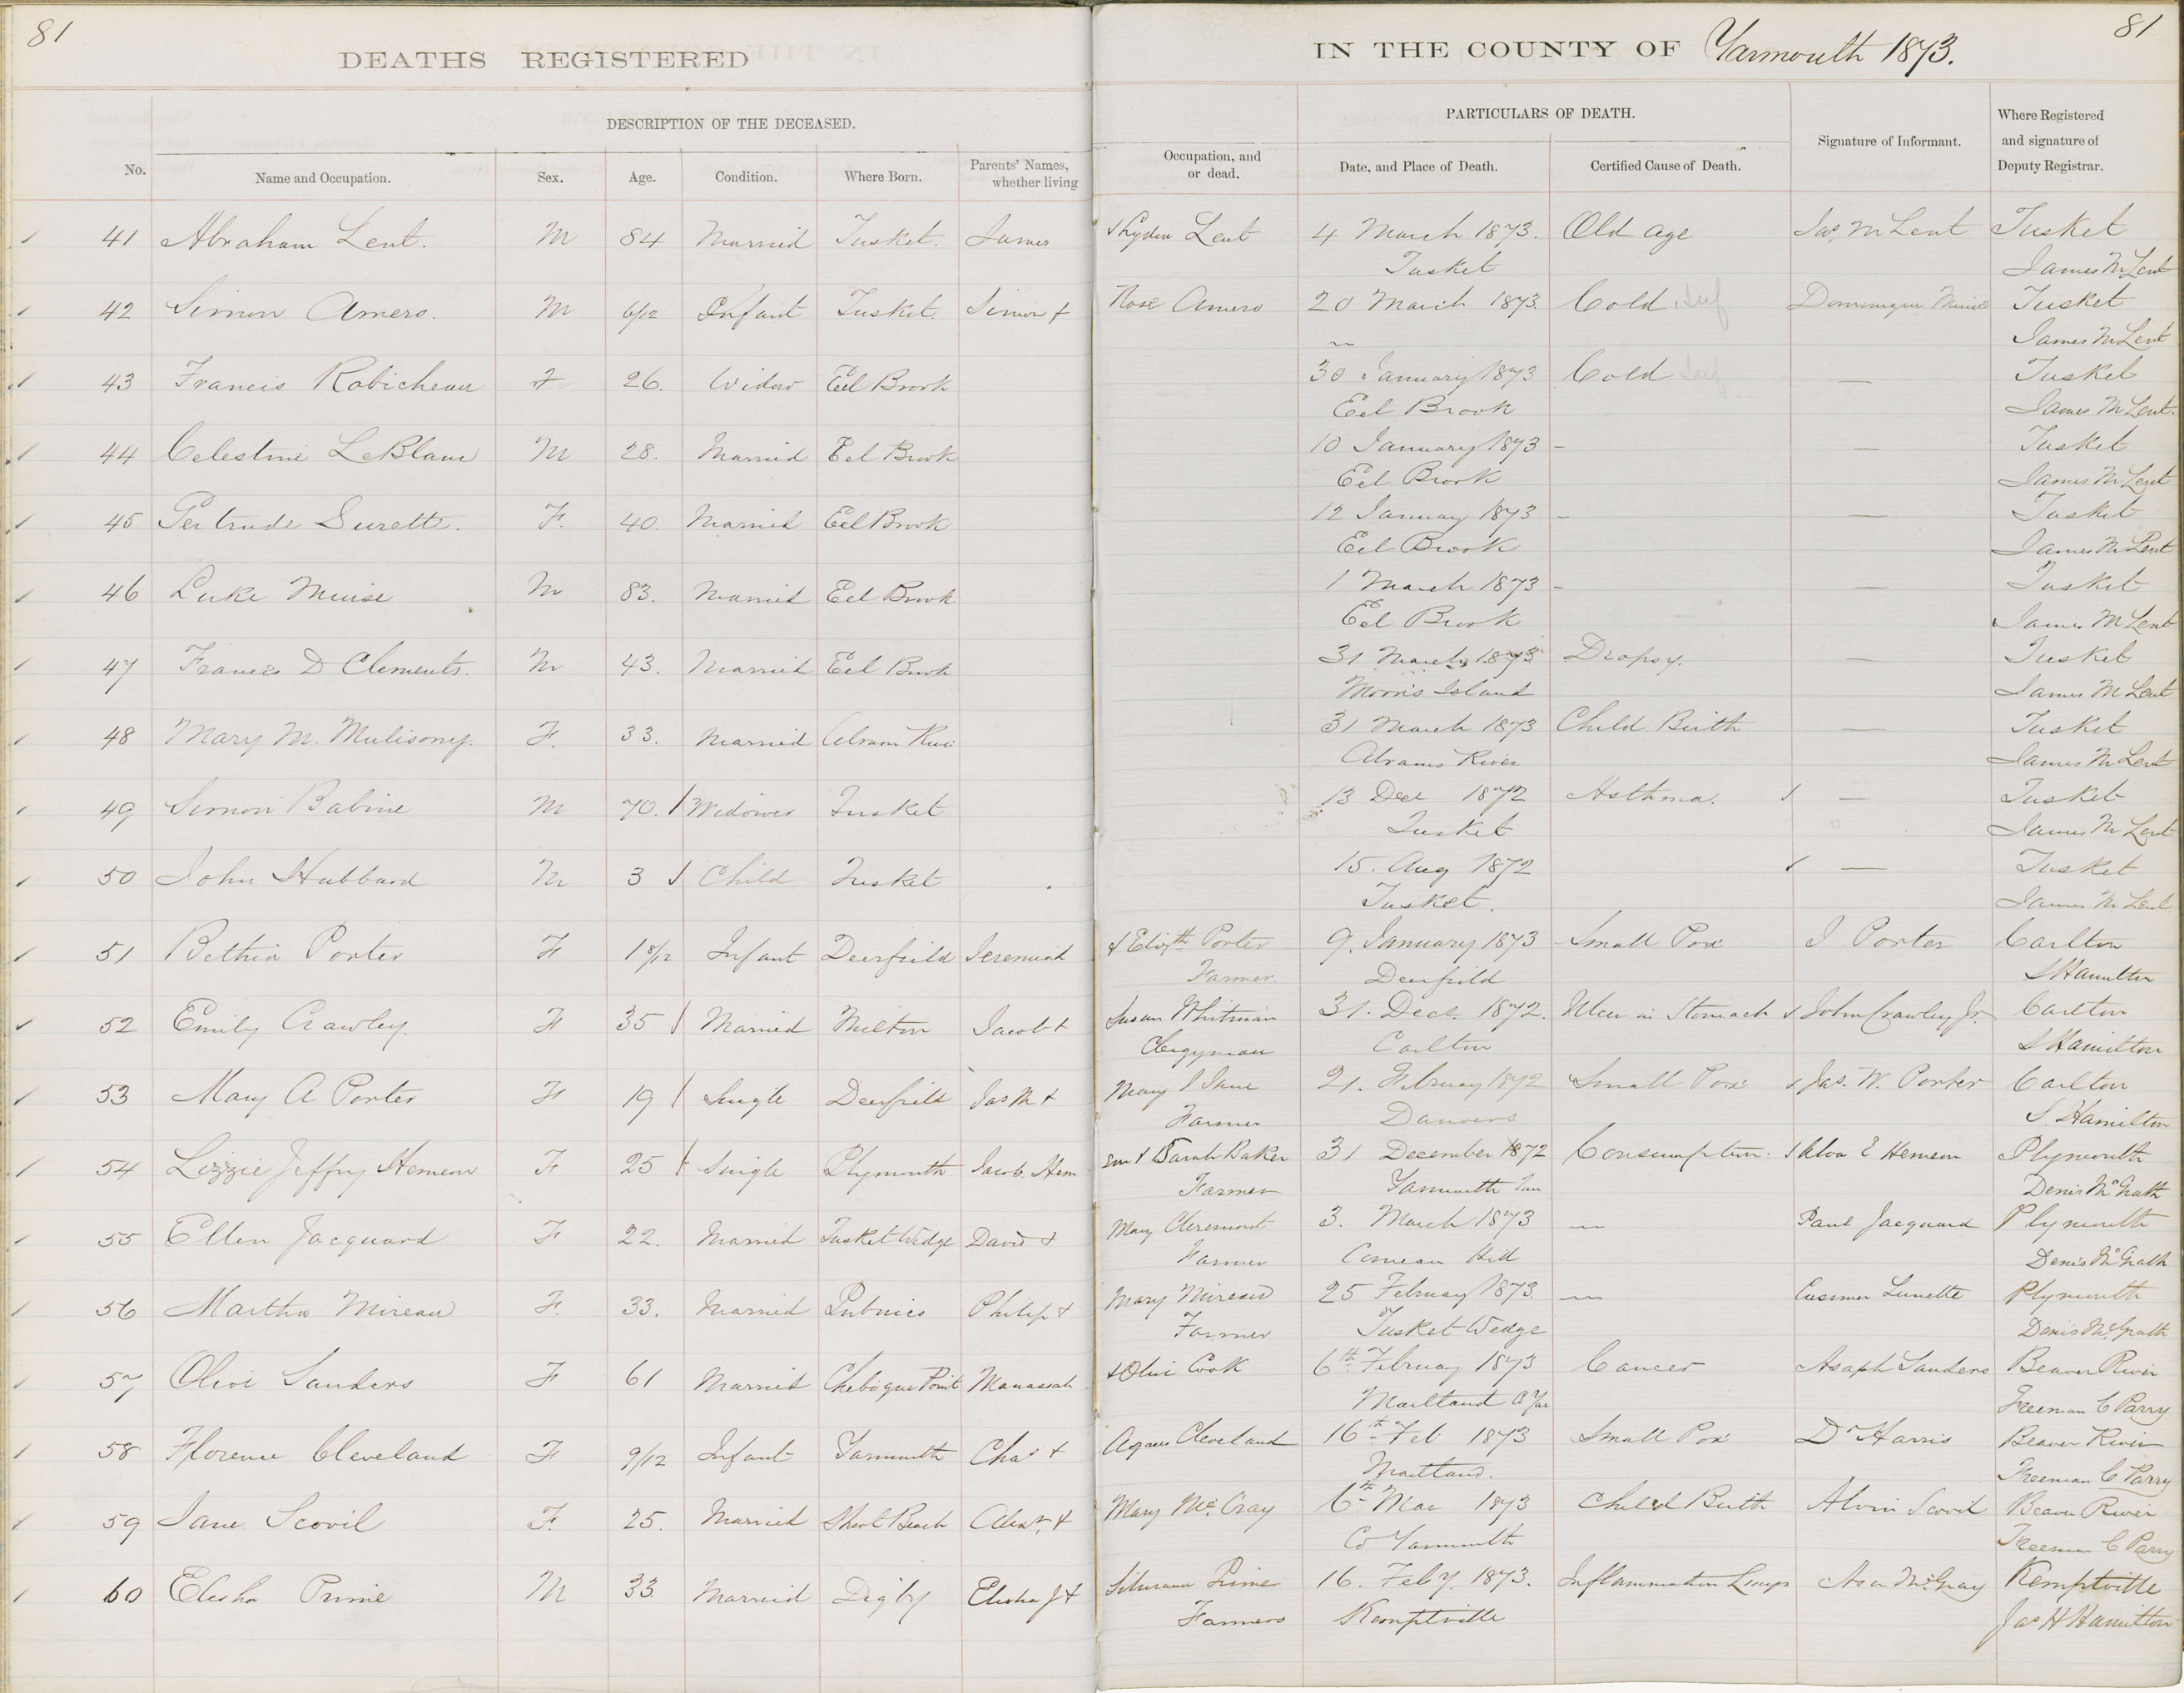 81
DEATHS REGISTERED
IN THE COUNTY OF Yarmouth 1873.
81
DESCRIPTION OF THE DECEASED.
PARTICULARS OF DEATH.
No.
Name and Occupation.
Sex.
Age.
Condition.
Where Born.
Parents' Names, whether living
Occupation, and or dead.
Date, and Place of Death.
Certified Cause of Death.
Signature of Informant.
Where Registered and signature of Deputy Registrar.
41 Abraham Lent. M 84 Married Tusket. James & Lydia Lent 4 March 1873. Old age Jas. M Lent Tusket
Tusket James M Lent
42 Simon Amero. M 6/12 Infant Tusket. Simon & Rose Amero 20 March 1873. Cold Inf Muise Tusket
James M Lent
43 Francis Robicheau F 26. Widow Eel Brook 30 January 1873 Cold Inf — Tusket
Eel Brook James M Lent.
44 Celestine LeBlanc M 28. Married Eel Brook 10 January 1873 - — Tusket
Eel Brook James M Lent
45 Gertrude Surette. F. 40. Married Eel Brook 12 January 1873 - — Tusket
Eel Brook James M Lent
46 Luke Muise M 83. Married Eel Brook 1 March 1873 - — Tusket
Eel Brook James M Lent
47 Francis D Clements. M 43. Married Eel Brook 31 March 1873 Dropsy. — Tusket
Morris Island James M Lent
48 Mary M. F. 33. Married Abram Rive 31 March 1873 Child Birth — Tusket
Abrams River James M Lent
49 Simon Babine M 70. Widower Tusket 13 Dec 1872 Asthma. — Tusket
Tusket James M Lent
50 John Hubbard M 3 Child Tusket 15. Aug 1872 — Tusket
Tusket. James M Lent
51 Bethia Porter F 1 8/12 Infant Deerfield Jeremiah & Elizth Porter 9. January 1873 Small Pox J Porter Carlton
Farmer. Deerfield S Hamilton
52 Emily Crawley. F 35 Married Milton Jacob & Susan Whitman 31. Dec. 1872. Ulcer in Stomach John Crawley Jr. Carlton
Clergyman Carlton S Hamilton
53 Mary A Porter F 19 Single Deerfield Jas M & Mary J Jane 21. February 1872 Small Pox Jas. W. Porter Carlton
Farmer Danvers S. Hamilton
54 Lizzie Jeffry Hemeon F 25 Single Plymouth Jacob. Hem eon & Sarah Baker 31 December 1872 Consumption. E Hemeon Plymouth
Farmer Yarmouth Denis McGrath
55 Ellen Jacquard F 22. Married Tusket Wedge David & Mary Cleremont 3. March 1873 — Paul Jacquard Plymouth
Farmer Comeau Hill Denis McGrath
56 Martha Mireau F. 33. Married Pubnico Philip & Mary Mireau 25 February 1873. — Plymouth
Farmer Tusket Wedge Denis McGrath
57 Olive Sanders F 61 Married Chebogue Point Manassah & Olive Cook 6th February 1873 Cancer Asaph Sanders Beaver River
Maitland Freeman C Parry
58 Florence Cleveland F 9/12 Infant Yarmouth Chas & Agnes Cleveland 16th Feb 1873 Small Pox Dr Harris Beaver River
Maitland. Freeman C Parry
59 Jane Scovil F. 25. Married Short Beach Alexr. & Mary McCray 6th Mar 1873 Child Birth Alvin Scovil Beaver River
Co Yarmouth Freeman C Parry
60 Elisha Prime M 33 Married Digby Elisha J & Prime 16. Feby. 1873. Inflammation Lungs Asa McGray Kemptville
Farmers Kemptville Jas H Hamilton